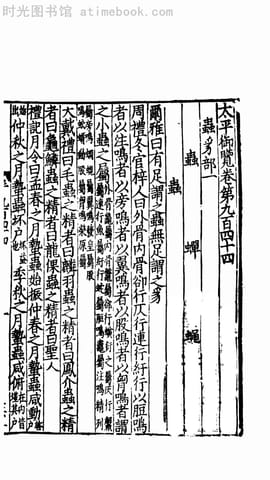 时光图书馆 - atimebook.com
太平御覽卷第九百四十四
蟲豸部一
蟲 蟬 蠅
蟲
爾雅曰有足謂之蟲無足謂之豸
周禮冬官梓人曰外骨内骨卻行仄行連行紆行以脰鳴
者以注鳴者以旁鳴者以翼鳴者以股鳴者以胷鳴者謂
之小蟲之屬
大戴禮曰毛蟲之精者曰麟羽蟲之精者曰鳳介蟲之精
者曰龜鱗蟲之精者曰龍倮蟲之精者曰聖人
禮記月令曰孟春之月蟄蟲始振仲春之月蟄蟲咸動啓
户始出仲秋之月蟄蟲坏户季秋之月蟄蟲咸俯在内皆墐其户